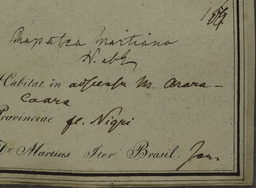 Mapatea Martiana
Habitat in adscensu M. Arara-
Coara
Provinciae fl. Nigri
Dr Martius Iter Brasil: Jan.